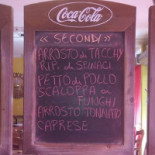 Coca-Cola
« SECONDI »
ARROSTO di TACCHI
RIP. di SPINACI
PETTO di POLLO
SCALOPPA ai
FUNGHI
ARROSTO TONNATO
CAPRESE